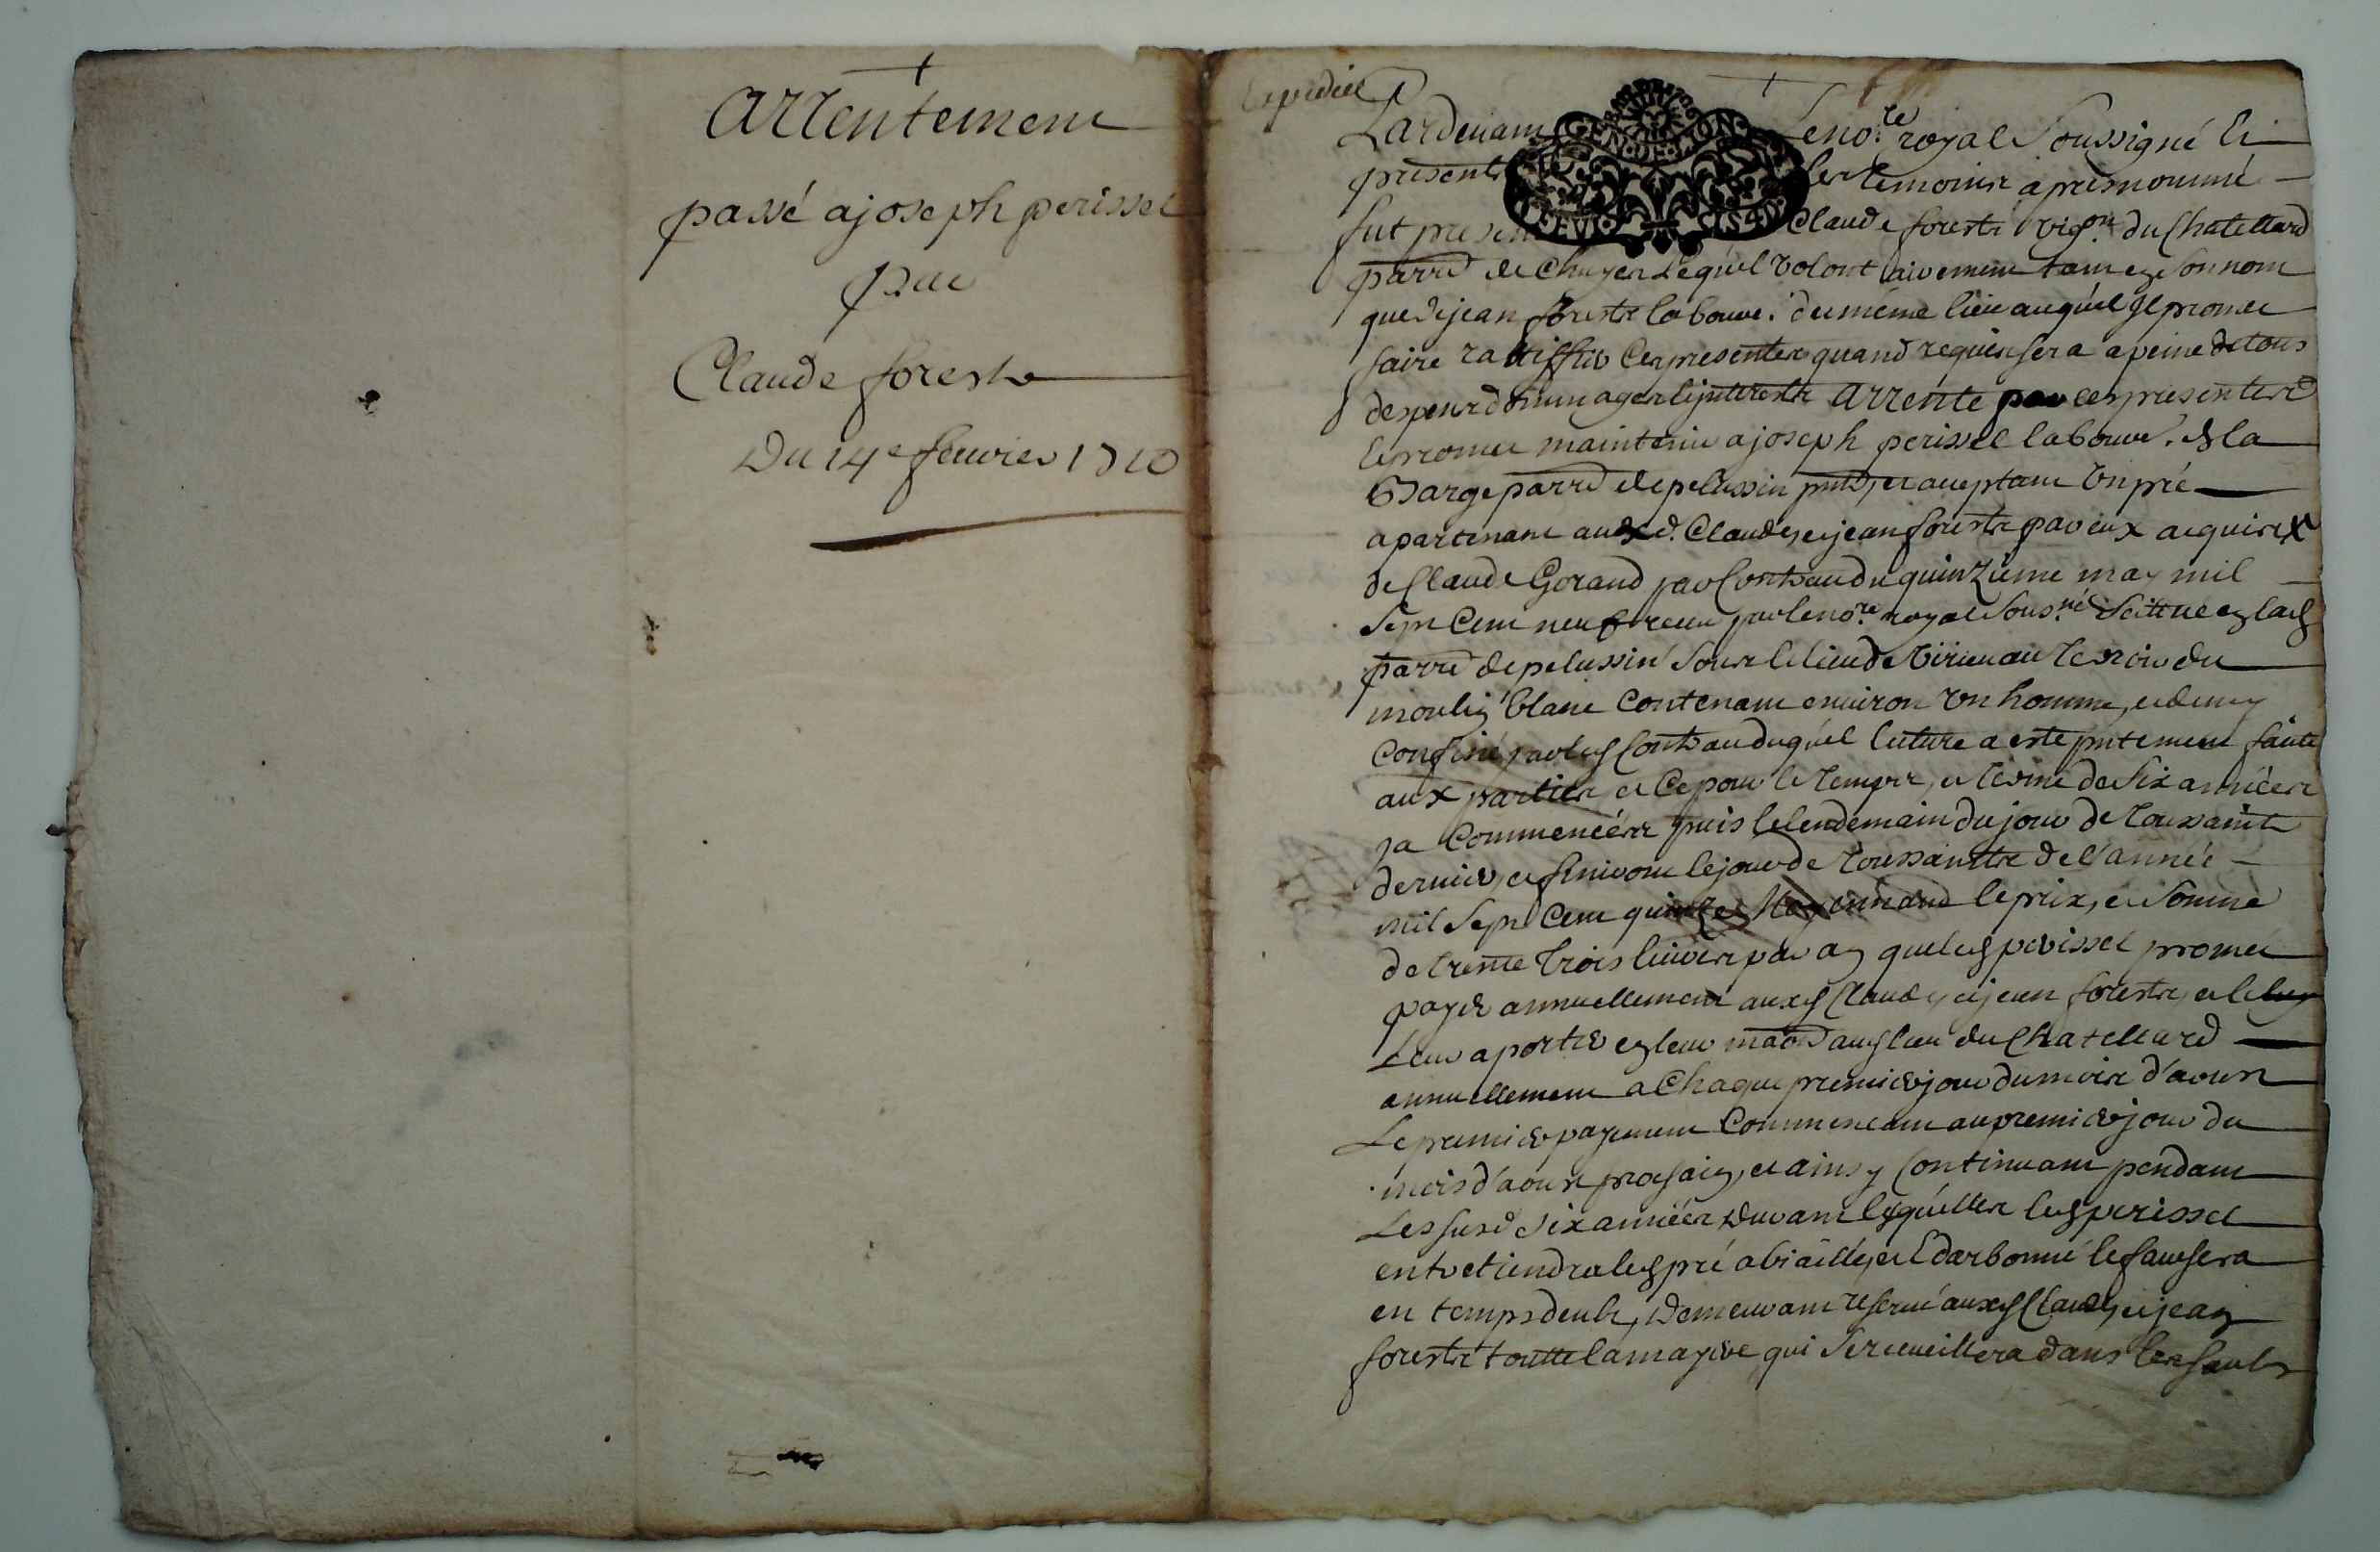 Arrentement
passé a joseph perissel
par
Claude forestz
Du 14e feuvrier 1710
Expedié
Pardevant Le nore royal soussigné et
presents les temoins apres nommé
fut present Claude forestz vigon du Chatellard
parre de Chuyer lequel volontairement tant en son nom
que de jean forestz laboure. du méme lieu auquel il promet
faire rattiffier ces presentes quand requis sera a peine de tous
despens dommages et jnterestz arrente par ces presentes
et promet maintenir a joseph perissel laboure. de la
Barge parre de pelussin pnt, et aceptant un pré
apartenant auxd. Claude, et jean forestz par eux acquis
de Claude Gorand par Contrat du quinzieme may mil
sept Cent neuf receu par le nore royal sousné scittue en lad
parre de pelussin sous le lieu de Virieu au Terroir du
moulin blanc Contenant environ un homme, et demy
Confiné par led Contrat duquel lecture a esté pntement faite
aux parties et Ce pour le temps, et terme de six années
ja Commencées puis le lendemain du jour de Toussaint
dernier, et finiront le jour de Toussaintz de l'année
mil sept Cent quinze Moyennand le prix, et somme
de trente trois livres par an que led perissel promet
payer annuellement auxd Claude, et jean forestz, et le
Leur aporter en leur maon aud lieu du Chatellard
annuellement a Chaque premier jour du mois d'aoust
Le premier payement Commencant au premier jour du
mois d'aoust prochain, et ainsy Continuant pendant
Les susd six années Duvant lesquelles led perissel
entretiendra led pré abiaillé, et Edarbonné le faucsera
en temps deubz, Demeurant reservé auxd Claude, et jean
forestz toutte la mayere qui se recueillera dans les saulz